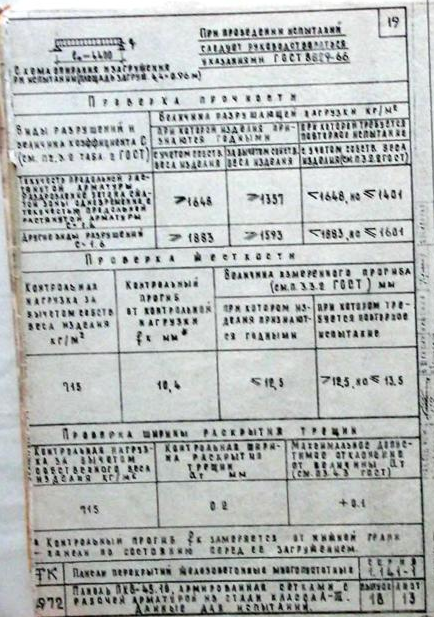 19
При проведении испытаний
следует руководствоваться
указаниями ГОСТ 8829-66
ℓо-4400
Схема опирания и загружения
при испытании (площадь загруж. 4,4×0.96 м)
Проверка прочности
Виды разрушений и
величина коэффициента С
(см. п.2.3.2 табл. 2 ГОСТ)
Величина разрушающей нагрузки кг/м²
при которой изделия при-
знаются годными
при которой требуется
повторное испытание
с учетом собств.
веса изделия
за вычетом собств.
веса изделия
с учетом собств. веса
изделия (см. п.3.2.2 ГОСТ)
Текучесть продольной рас-
тянутой арматуры
раздробление бетона сжа-
той зоны одновременно с
текучестью продольной
растянутой арматуры
С=1.4
≥1648
≥1357
<1648, но ≤1401
Другие виды разрушений
С=1.6
≥1883
≥1593
<1883, но ≤1601
Проверка жесткости
Контрольная
нагрузка за
вычетом собств.
веса изделия
кг/м²
Контрольный
прогиб
от контрольной
нагрузки
fк мм*
Величина измеренного прогиба
(см. п.3.3.2 ГОСТ) мм
при котором из-
делия признают-
ся годными
при котором тре-
буется повторное
испытание
715
10,4
≤12,5
>12,5, но ≤13,5
Проверка ширины раскрытия трещин
Контрольная нагруз-
ка за вычетом
собственного веса
изделия кг/м²
Контрольная шири-
на раскрытия
трещин
aт мм
Максимальное допус-
тимое отклонение
от величины aт
(см. п.3.4.3 ГОСТ)
715
0.2
+0.1
* Контрольный прогиб fк замеряется от нижней грани
панели по состоянию перед ее загружением.
ТК
Панели перекрытий железобетонные многопустотные
серия
1.141-1
972
Панель ПК8-45.10, армированная сетками с
рабочей арматурой из стали класса А-III.
Данные для испытаний.
выпуск
лист
18
13